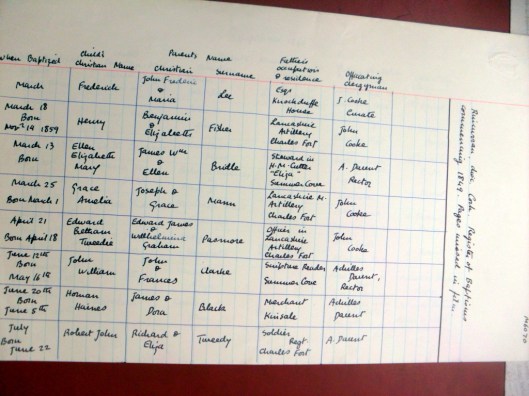 When Baptized Child's Christian Name Parents Name Christian Surname Father's occupation & residence Officiating clergyman
March Frederick John Frederic & Maria Lee Esqr Knockduffe House J. Cooke Curate
March 18 Born Henry Benjamin & Elizabeth Fisher Lancashire Artillery Charles Fort John Cooke
March 13 Born Ellen Elizabeth Mary James Wm & Ellen Steward in H.M. Cutter "Eliza" Summer Cove A. Daunt Rector
March 25 Born March 1 Grace Amelia Joseph & Grace Mann Lancashire M. Artillery Charles Fort John Cooke
April 21 Born April 18 Edward Tweedie Edward James & Graham Pasmore Officer in Lancashire Artillery Charles Fort John Cooke
June 12th Born May 16th John William John & Frances Clarke Scripture Reader Summer Cove Achilles Daunt, Rector
June 20th Born June 5th Haines James & Dora Blake Merchant Kinsale Achilles Daunt
July Born June 22 Robert John Richard & Eliza Tweedy Soldier Regt Charles Fort A. Daunt
Co. Cork. Register of Baptisms
commencing 1849. Pages missed in film